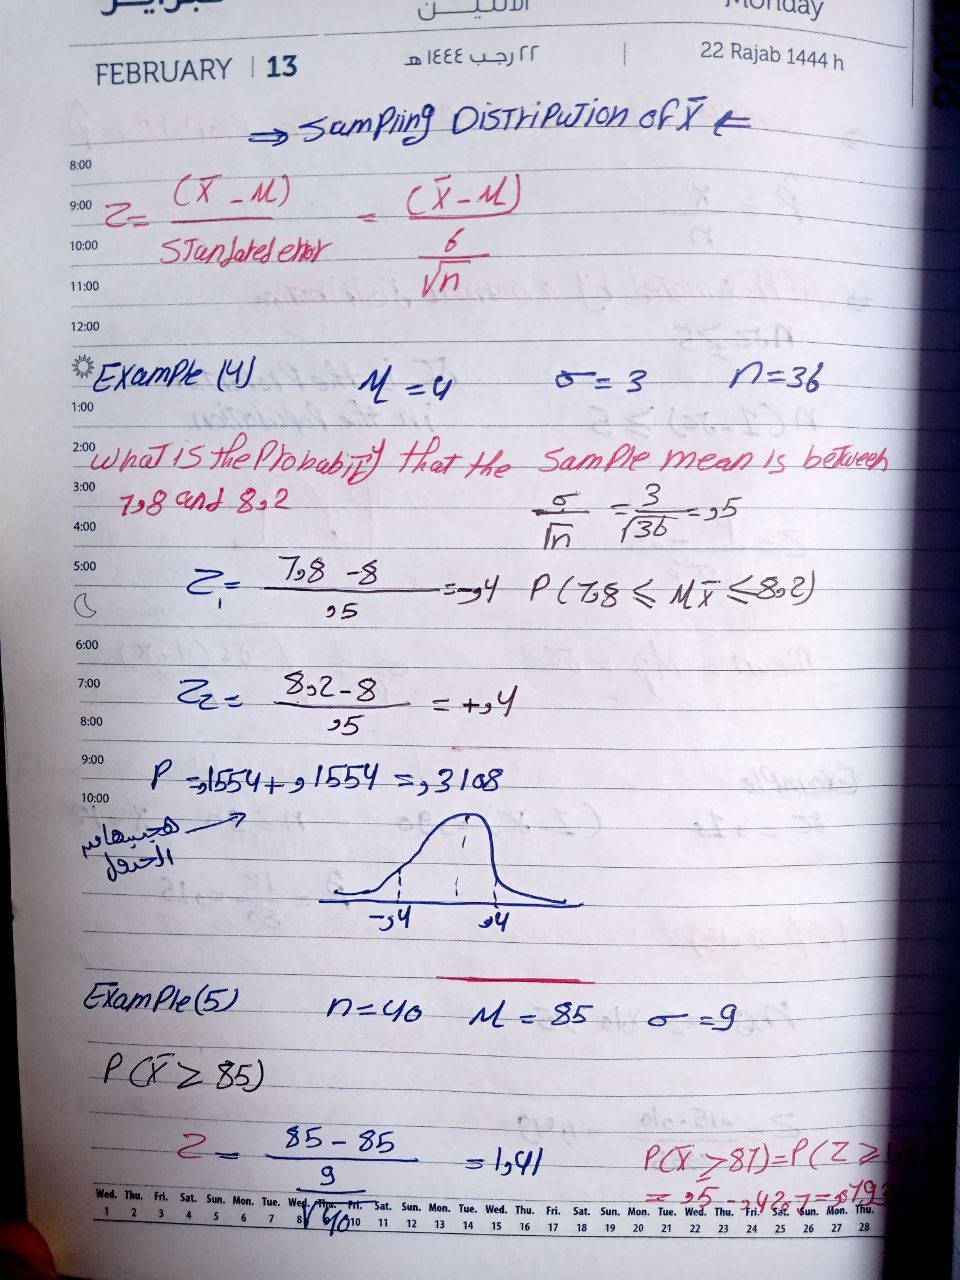 Monday
FEBRUARY | 13
٢٢ رجب ١٤٤٤ هـ | 22 Rajab 1444 h
⇒ Sampling Distripution of X̄ ⇐
8:00
9:00 Z = (X̄ - M) / Standared error = (X̄ - M) / (6/√n)
10:00
11:00
12:00
Example (4) M = 4 σ = 3 n = 36
1:00
2:00 What is the Probability that the Sample mean is between
3:00 7,8 and 8,2 σ/√n = 3/√36 = ,5
4:00
5:00 Z₁ = (7,8 - 8) / ,5 = -,4 P(7,8 ⩽ Mx̄ ⩽ 8,2)
6:00
7:00 Z₂ = (8,2 - 8) / ,5 = +,4
8:00
9:00 P = ,1554 + ,1554 = ,3108
10:00
الجدول
-,4 ,4
Example (5) n = 40 M = 85 σ = 9
P(X̄ ≥ 85)
Z = (85 - 85) / (9/√40) = 1,41 P(X̄ ≥ 87) = P(Z ≥
Wed. Thu. Fri. Sat. Sun. Mon. Tue. Wed. Thu. Fri. Sat. Sun. Mon. Tue. Wed. Thu. Fri. Sat. Sun. Mon. Tue. Wed. Thu. Fri. Sat. Sun. Mon. Thu.
1 2 3 4 5 6 7 8 10 11 12 13 14 15 16 17 18 19 20 21 22 23 24 25 26 27 28